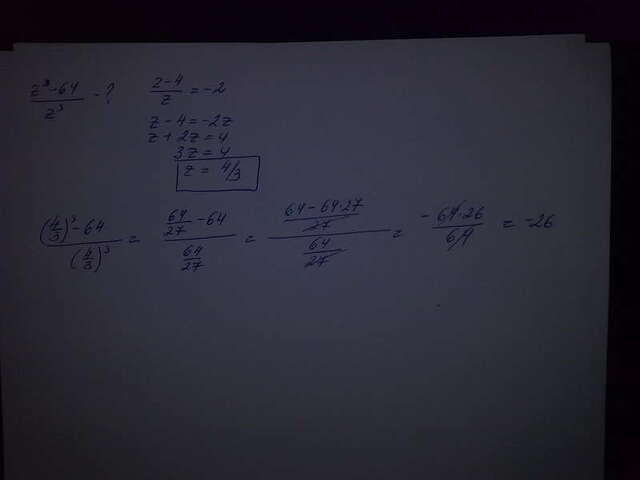 z³-64/z³ - ? z-4/z = -2
z - 4 = -2z
z + 2z = 4
3z = 4
z = 4/3
(4/3)³-64/(4/3)³ = 64/27 - 64/64/27 = 64-64·27/27/64/27 = -64·26/64 = -26